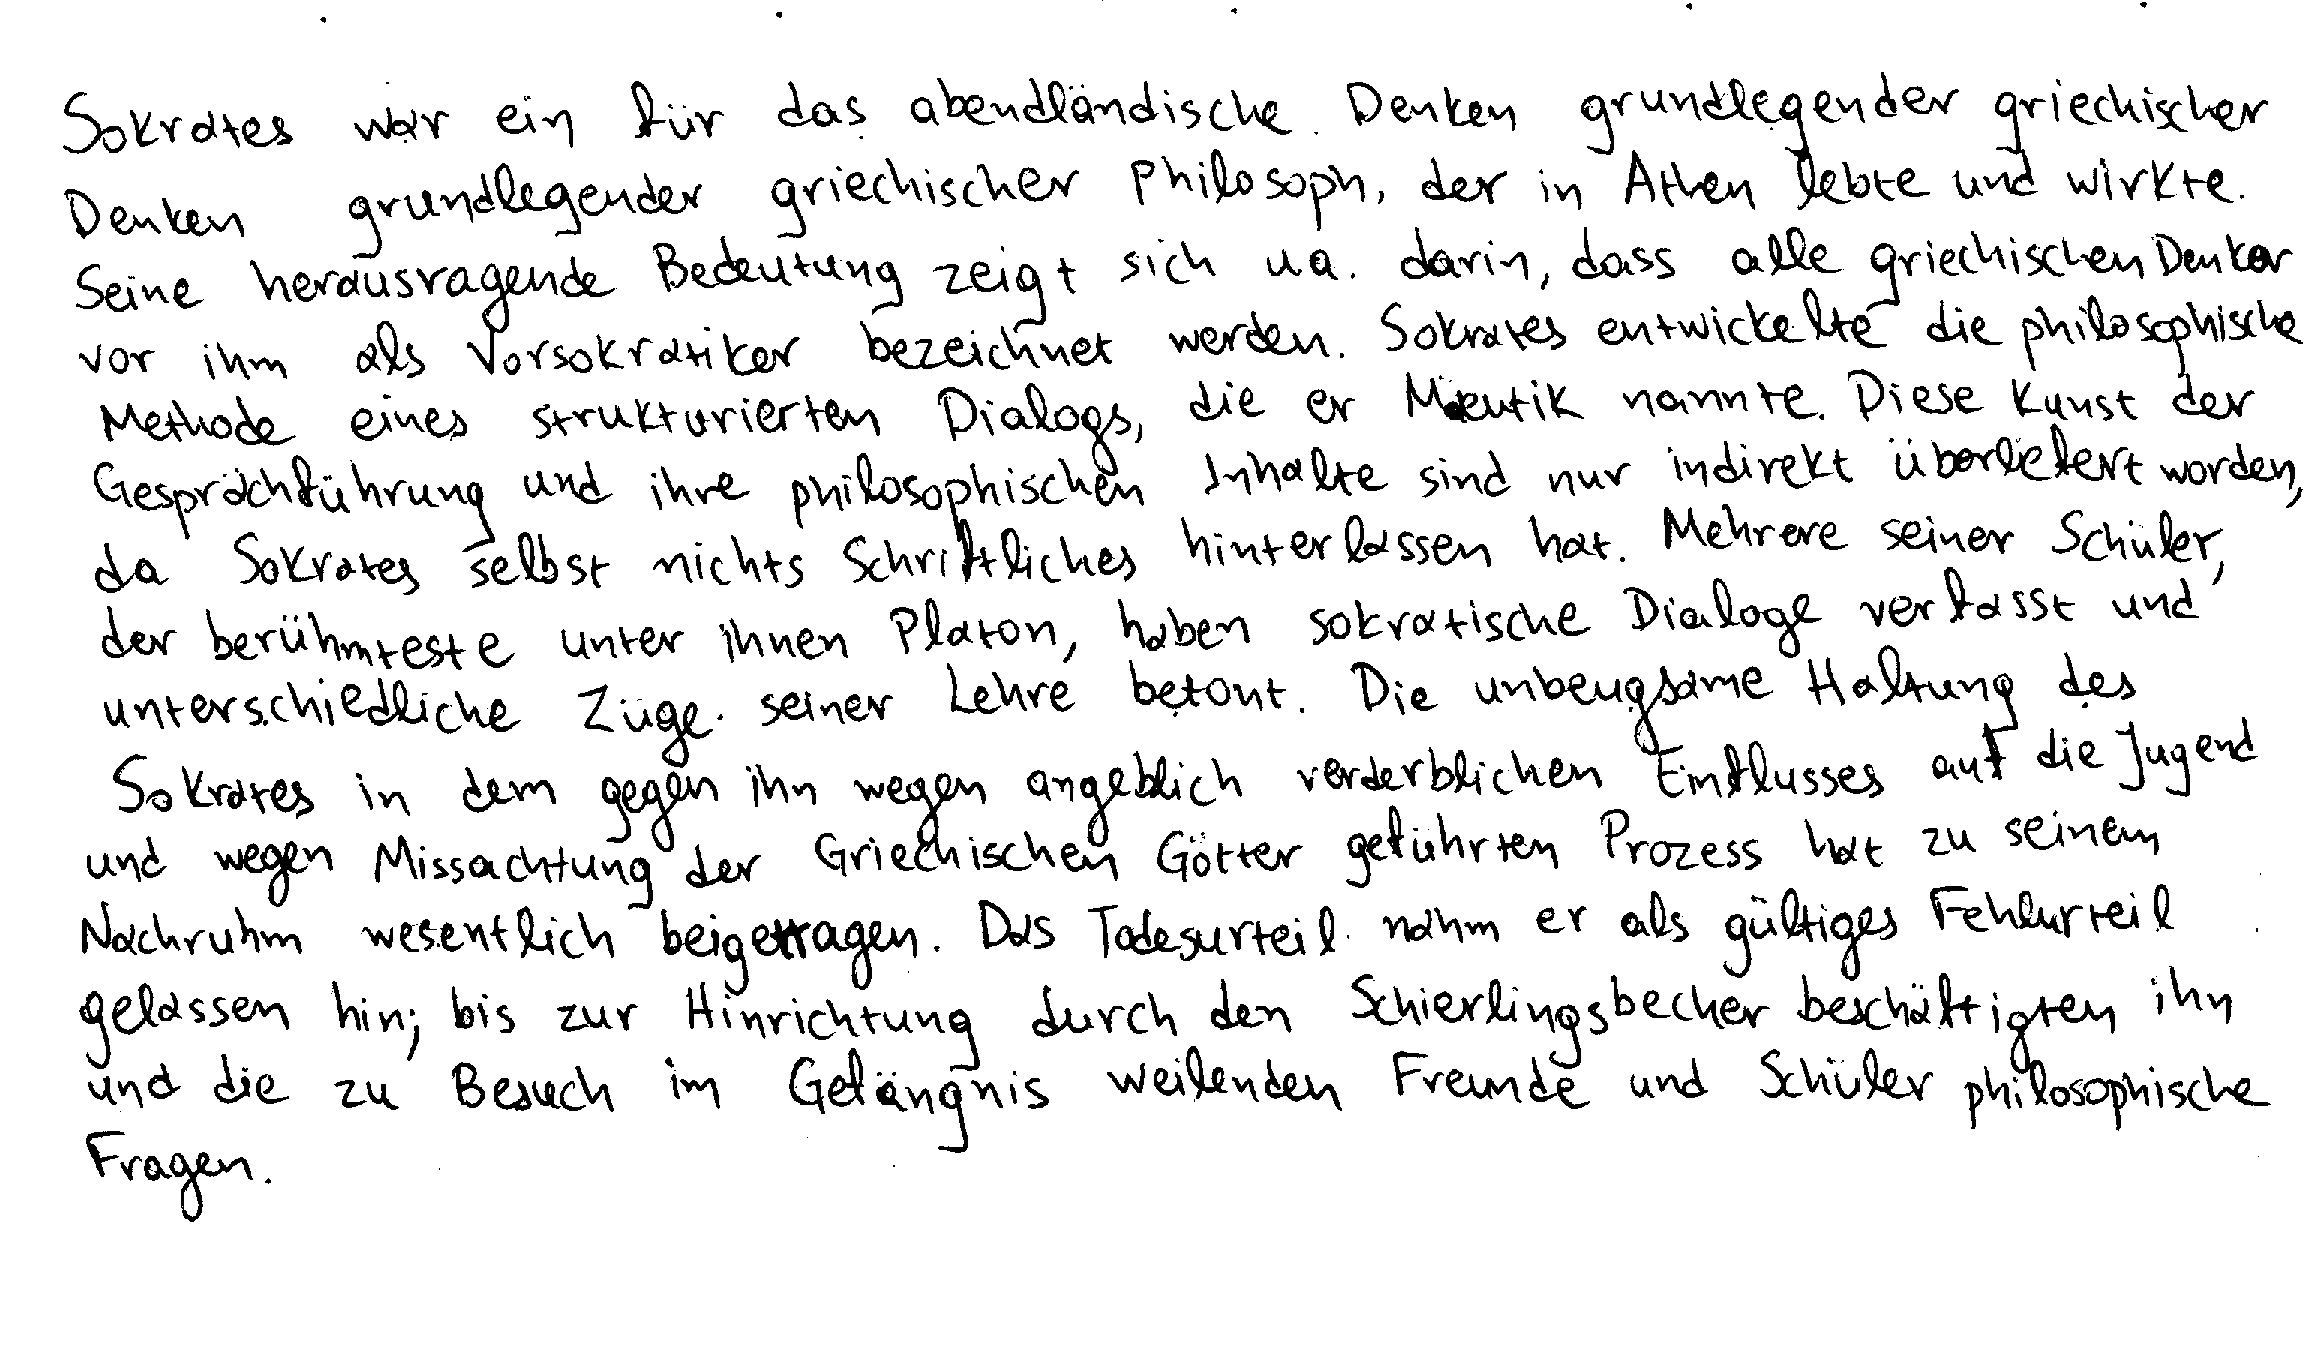 Sokrates war ein für das abendländische Denken grundlegender griechischer
Denken grundlegender griechischer Philosoph, der in Athen lebte und wirkte.
Seine herausragende Bedeutung zeigt sich u.a. darin, dass alle griechischen Denker
vor ihm als Vorsokratiker bezeichnet werden. Sokrates entwickelte die philosophische
Methode eines strukturierten Dialogs, die er Mäeutik nannte. Diese Kunst der
Gesprächführung und ihre philosophischen Inhalte sind nur indirekt überliefert worden,
da Sokrates selbst nichts Schriftliches hinterlassen hat. Mehrere seiner Schüler,
der berühmteste unter ihnen Platon, haben sokratische Dialoge verfasst und
unterschiedliche Züge seiner Lehre betont. Die unbeugsame Haltung des
Sokrates in dem gegen ihn wegen angeblich verderblichen Einflusses auf die Jugend
und wegen Missachtung der Griechischen Götter geführten Prozess hat zu seinem
Nachruhm wesentlich beigetragen. Das Todesurteil nahm er als gültiges Fehlurteil
gelassen hin; bis zur Hinrichtung durch den Schierlingsbecher beschäftigten ihn
und die zu Besuch im Gefängnis weilenden Freunde und Schüler philosophische
Fragen.